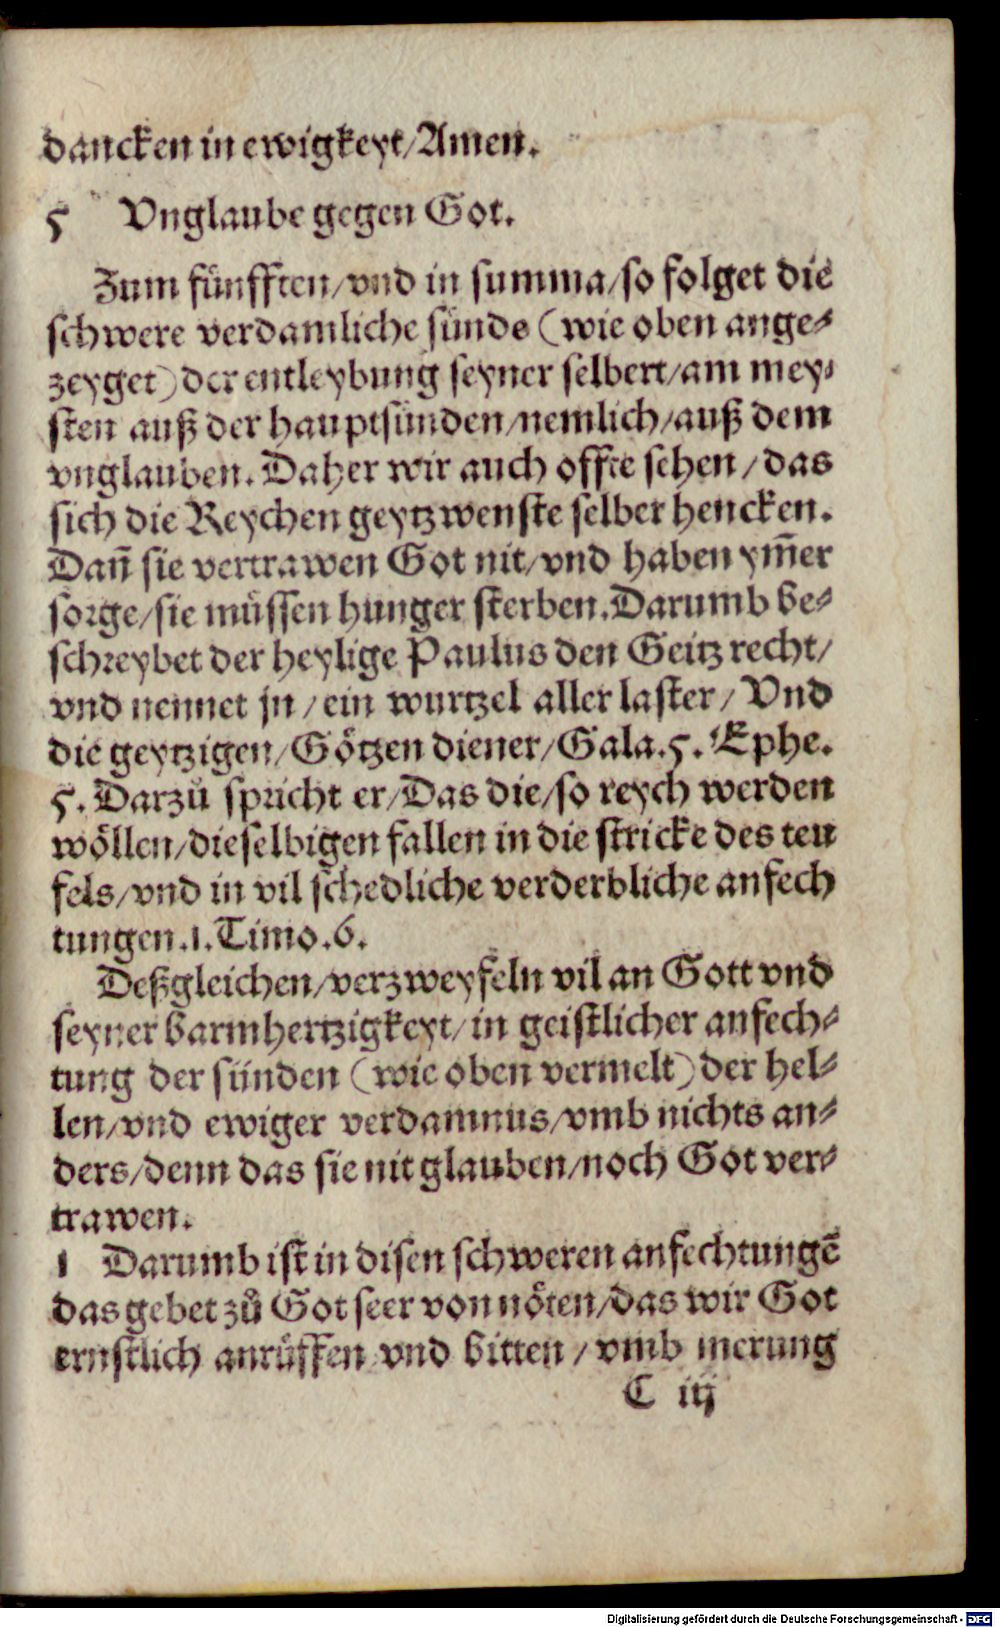 dancken in ewigkeyt/Amen.
5 Vnglaube gegen Got.
Zum fünfften/vnd in summa/so folget die
schwere verdamliche sünde (wie oben ange⸗
zeyget) der entleybung seyner selbert/am mey⸗
sten auß der hauptsünden/nemlich/auß dem
vnglauben. Daher wir auch offte sehen/das
sich die Reychen geytzwenste selber hencken.
Dañ sie vertrawen Got nit/vnd haben ym̃er
sorge/sie müssen hunger sterben. Darumb be⸗
schreybet der heylige Paulus den Geitz recht/
vnd nennet jn/ein wurtzel aller laster/Vnd
die geytzigen/Götzen diener/Gala.5. Ephe.
5. Darzů spricht er/Das die/so reych werden
wöllen/dieselbigen fallen in die stricke des teu
fels/vnd in vil schedliche verderbliche anfech
tungen.1.Timo.6.
Deßgleichen/verzweyfeln vil an Gott vnd
seyner barmhertzigkeyt/in geistlicher anfech⸗
tung der sünden (wie oben vermelt) der hel⸗
len/vnd ewiger verdamnus/vmb nichts an⸗
ders/denn das sie nit glauben/noch Got ver⸗
trawen.
1 Darumb ist in disen schweren anfechtungē
das gebet zů Got seer von nöten/das wir Got
ernstlich anrüffen vnd bitten/vmb merung
C iij
Digitalisierung gefördert durch die Deutsche Forschungsgemeinschaft - DFG